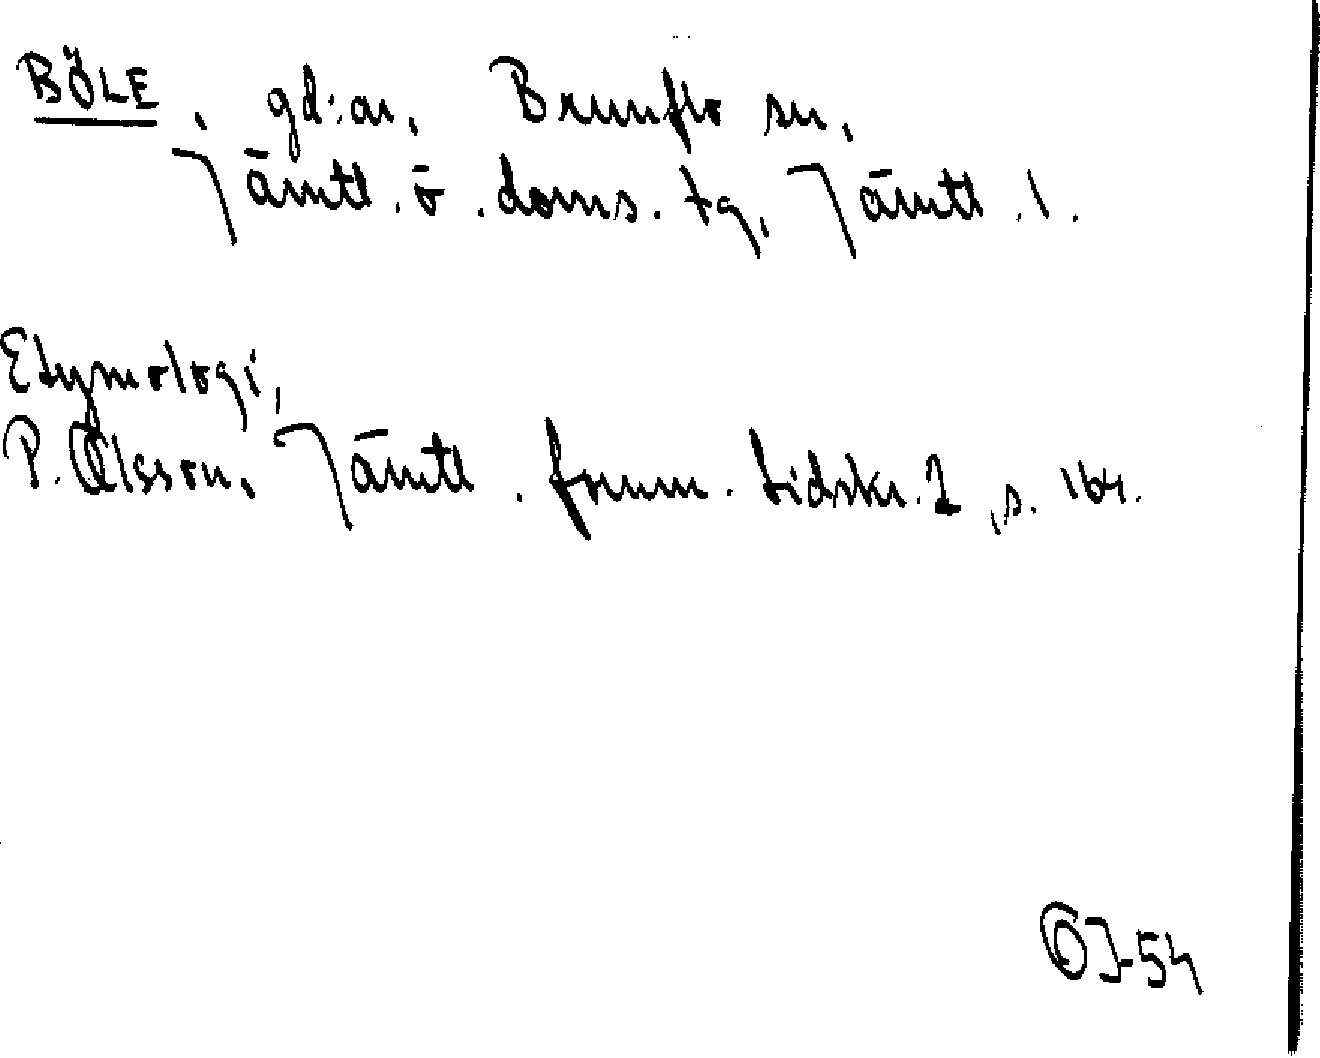 BÖLE, gd:ar, Brunflo sn,
Jämtl. ö. doms. tg, Jämtl. l.
Etymologi,
P. Olsson, Jämtl. fornm. tidskr. 1, s. 164.
OJ-54